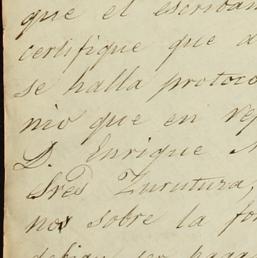 que el escriban
certifique que d
se halla protoco
nio que en ve
D. Enrique
Sres Zurutuza,
nos sobre la for
debian ser paga